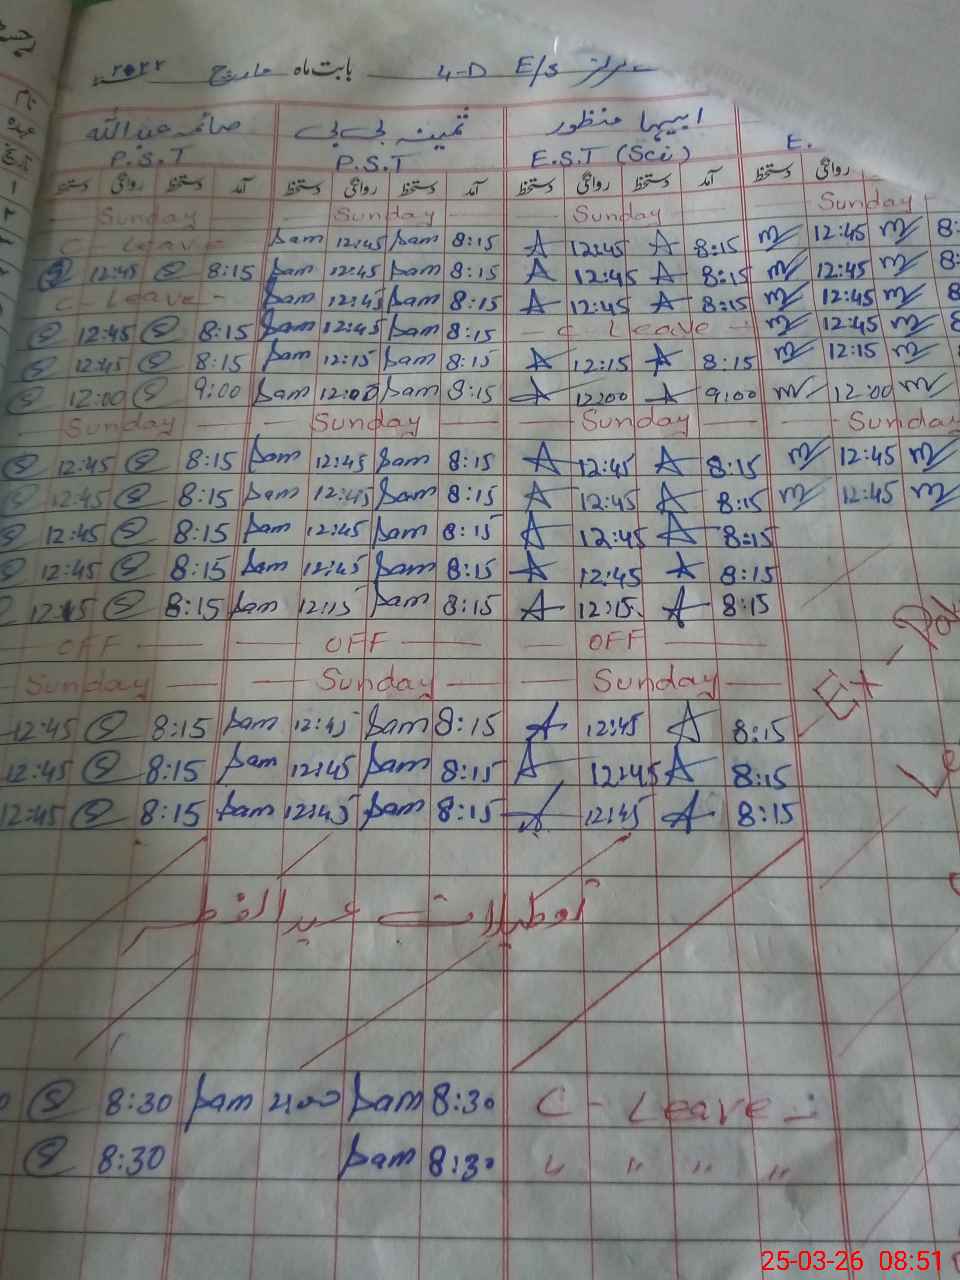 4-D E/S بابت ماہ مارچ
صائمہ عبداللہ ثمینہ بی بی ابیہا منظور
P.S.T P.S.T E.S.T (Sci) E.
دستخط روانگی دستخط آمد دستخط روانگی دستخط آمد دستخط روانگی دستخط آمد دستخط روانگی
Sunday Sunday Sunday Sunday
C - Leave - Sam 12:45 Sam 8:15 A 12:45 A 8:15 m 12:45 m 8:
S 12:45 S 8:15 Sam 12:45 Sam 8:15 A 12:45 A 8:15 m 12:45 m 8:
C - Leave - Sam 12:45 Sam 8:15 A 12:45 A 8:15 m 12:45 m 8
S 12:45 S 8:15 Sam 12:45 Sam 8:15 - C Leave - m 12:45 m 8
S 12:45 S 8:15 Sam 12:15 Sam 8:15 A 12:15 A 8:15 m 12:15 m
S 12:00 S 9:00 Sam 12:00 Sam 8:15 A 12:00 A 9:00 m 12:00 m
Sunday Sunday Sunday Sunday
S 12:45 S 8:15 Sam 12:45 Sam 8:15 A 12:45 A 8:15 m 12:45 m
S 12:45 S 8:15 Sam 12:45 Sam 8:15 A 12:45 A 8:15 m 12:45 m
S 12:45 S 8:15 Sam 12:45 Sam 8:15 A 12:45 A 8:15
S 12:45 S 8:15 Sam 12:45 Sam 8:15 A 12:45 A 8:15
12:15 S 8:15 Sam 12:15 Sam 8:15 A 12:15 A 8:15
OFF OFF OFF
Sunday Sunday Sunday
Ex - Pak
12:45 S 8:15 Sam 12:45 Sam 8:15 A 12:45 A 8:15
12:45 S 8:15 Sam 12:45 Sam 8:15 A 12:45 A 8:15
Le
12:45 S 8:15 Sam 12:45 Sam 8:15 A 12:45 A 8:15
تعطیلات عید الفطر
S 8:30 Sam 2:00 Sam 8:30 C - Leave -
S 8:30 Sam 8:30 " " " "
25-03-26 08:51